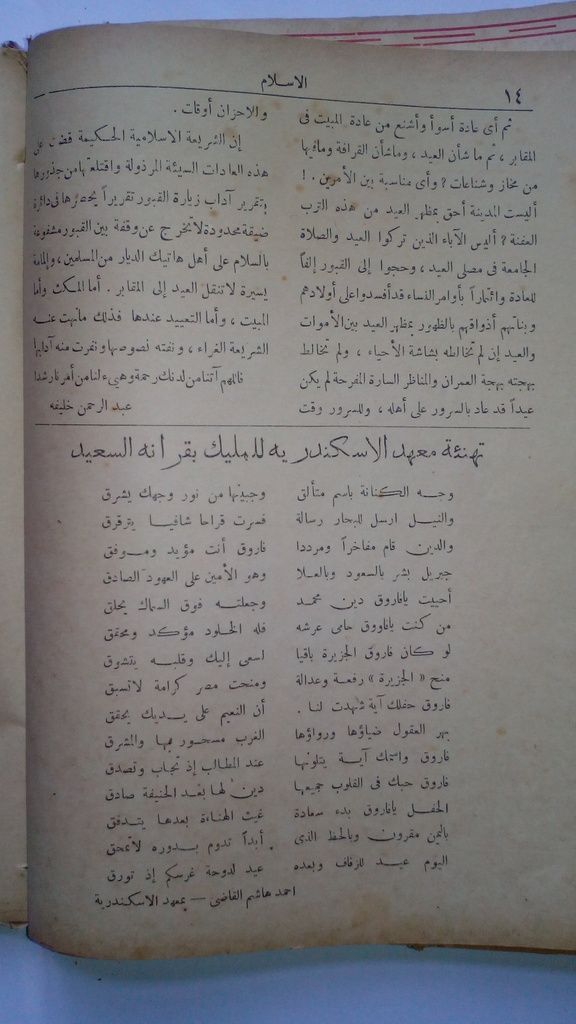 ١٤
الاسلام
ثم أي عادة أسوأ وأشنع من عادة المبيت فى
المقابر ، ثم ما شأن العيد ، وماشأن القرافة ومافيها
من مخاز وشناعات ؟ وأى مناسبة بين الأمرين . !
أليست المدينة أحق بمظهر العيد من هذه الترب
العفنة ؟ أليس الآباء الذين تركوا العيد والصلاة
الجامعة فى مصلى العيد ، وحجوا إلى القبور إلفاً
للعادة وائتماراً بأوامر النساء قد أفسدوا على أولادهم
وبناتهم أذواقهم بالظهور بمظهر العيد بين الأموات
والعيد إن لم تخالطه بشاشة الأحياء ، ولم تخالط
بهجته بهجة العمران والمناظر السارة المفرحة لم يكن
عيداً قد عاد بالسرور على أهله ، وللسرور وقت
وللاحزان أوقات .
إن الشريعة الاسلامية الحكيمة قضت على
هذه العادات السيئة المرذولة واقتلعتها من جذورها
بتقرير آداب زيارة القبور تقريراً يحصرها فى دائرة
ضيقة محدودة لاتخرج عن وقفة بين القبور مشفوعة
بالسلام على أهل هاتيك الديار من المسلمين ، وإلمامة
يسيرة لاتنقل العيد إلى المقابر . أما المكث وأما
المبيت ، وأما التعييد عندها فذلك مانهت عنه
الشريعة الغراء ، ونفته نصوصها ونفرت منه آدابها
فاللهم آتنا من لدنك رحمة وهيىء لنا من أمرنا رشدا
عبد الرحمن خليفه
تهنئة معهد الاسكندريه للمليك بقرانه السعيد
وجه الكنانة باسم متألق وجبينها من نور وجهك يشرق
والنيل ارسل للبحار رسالة فسرت قراحا شافيا يترقرق
والدين قام مفاخراً ومرددا فاروق أنت مؤيد وموفق
جبريل بشر بالسعود وبالعلا وهو الأمين على العهود الصادق
أحييت يافاروق دين محمد وجعلته فوق السماك يحلق
من كنت يافاروق حامى عرشه فله الخلود مؤكد ومحقق
لو كان فاروق الجزيرة باقيا اسعى إليك وقلبه يتشوق
منح « الجزيرة » رفعة وعدالة ومنحت مصر كرامة لاتسبق
فاروق حفلك آية شهدت لنا . أن النعيم على يديك يحقق
بهر العقول ضياؤها ورواؤها الغرب مسحور بها والمشرق
فاروق واسمك آية يتلونها عند المطالب إذ تجاب وتصدق
فاروق حبك فى القلوب جميعها دين لها بعد الحنيفة صادق
الحفل يافاروق بدء سعادة غيث الهناءة بعدها يتدفق
باليمن مقرون وبالحظ الذى أبداً تدوم بدوره لاتمحق
اليوم عيد للزفاف وبعده عيد لدوحة غرسكم إذ تورق
احمد هاشم القاضى — بمعهد الاسكندرية